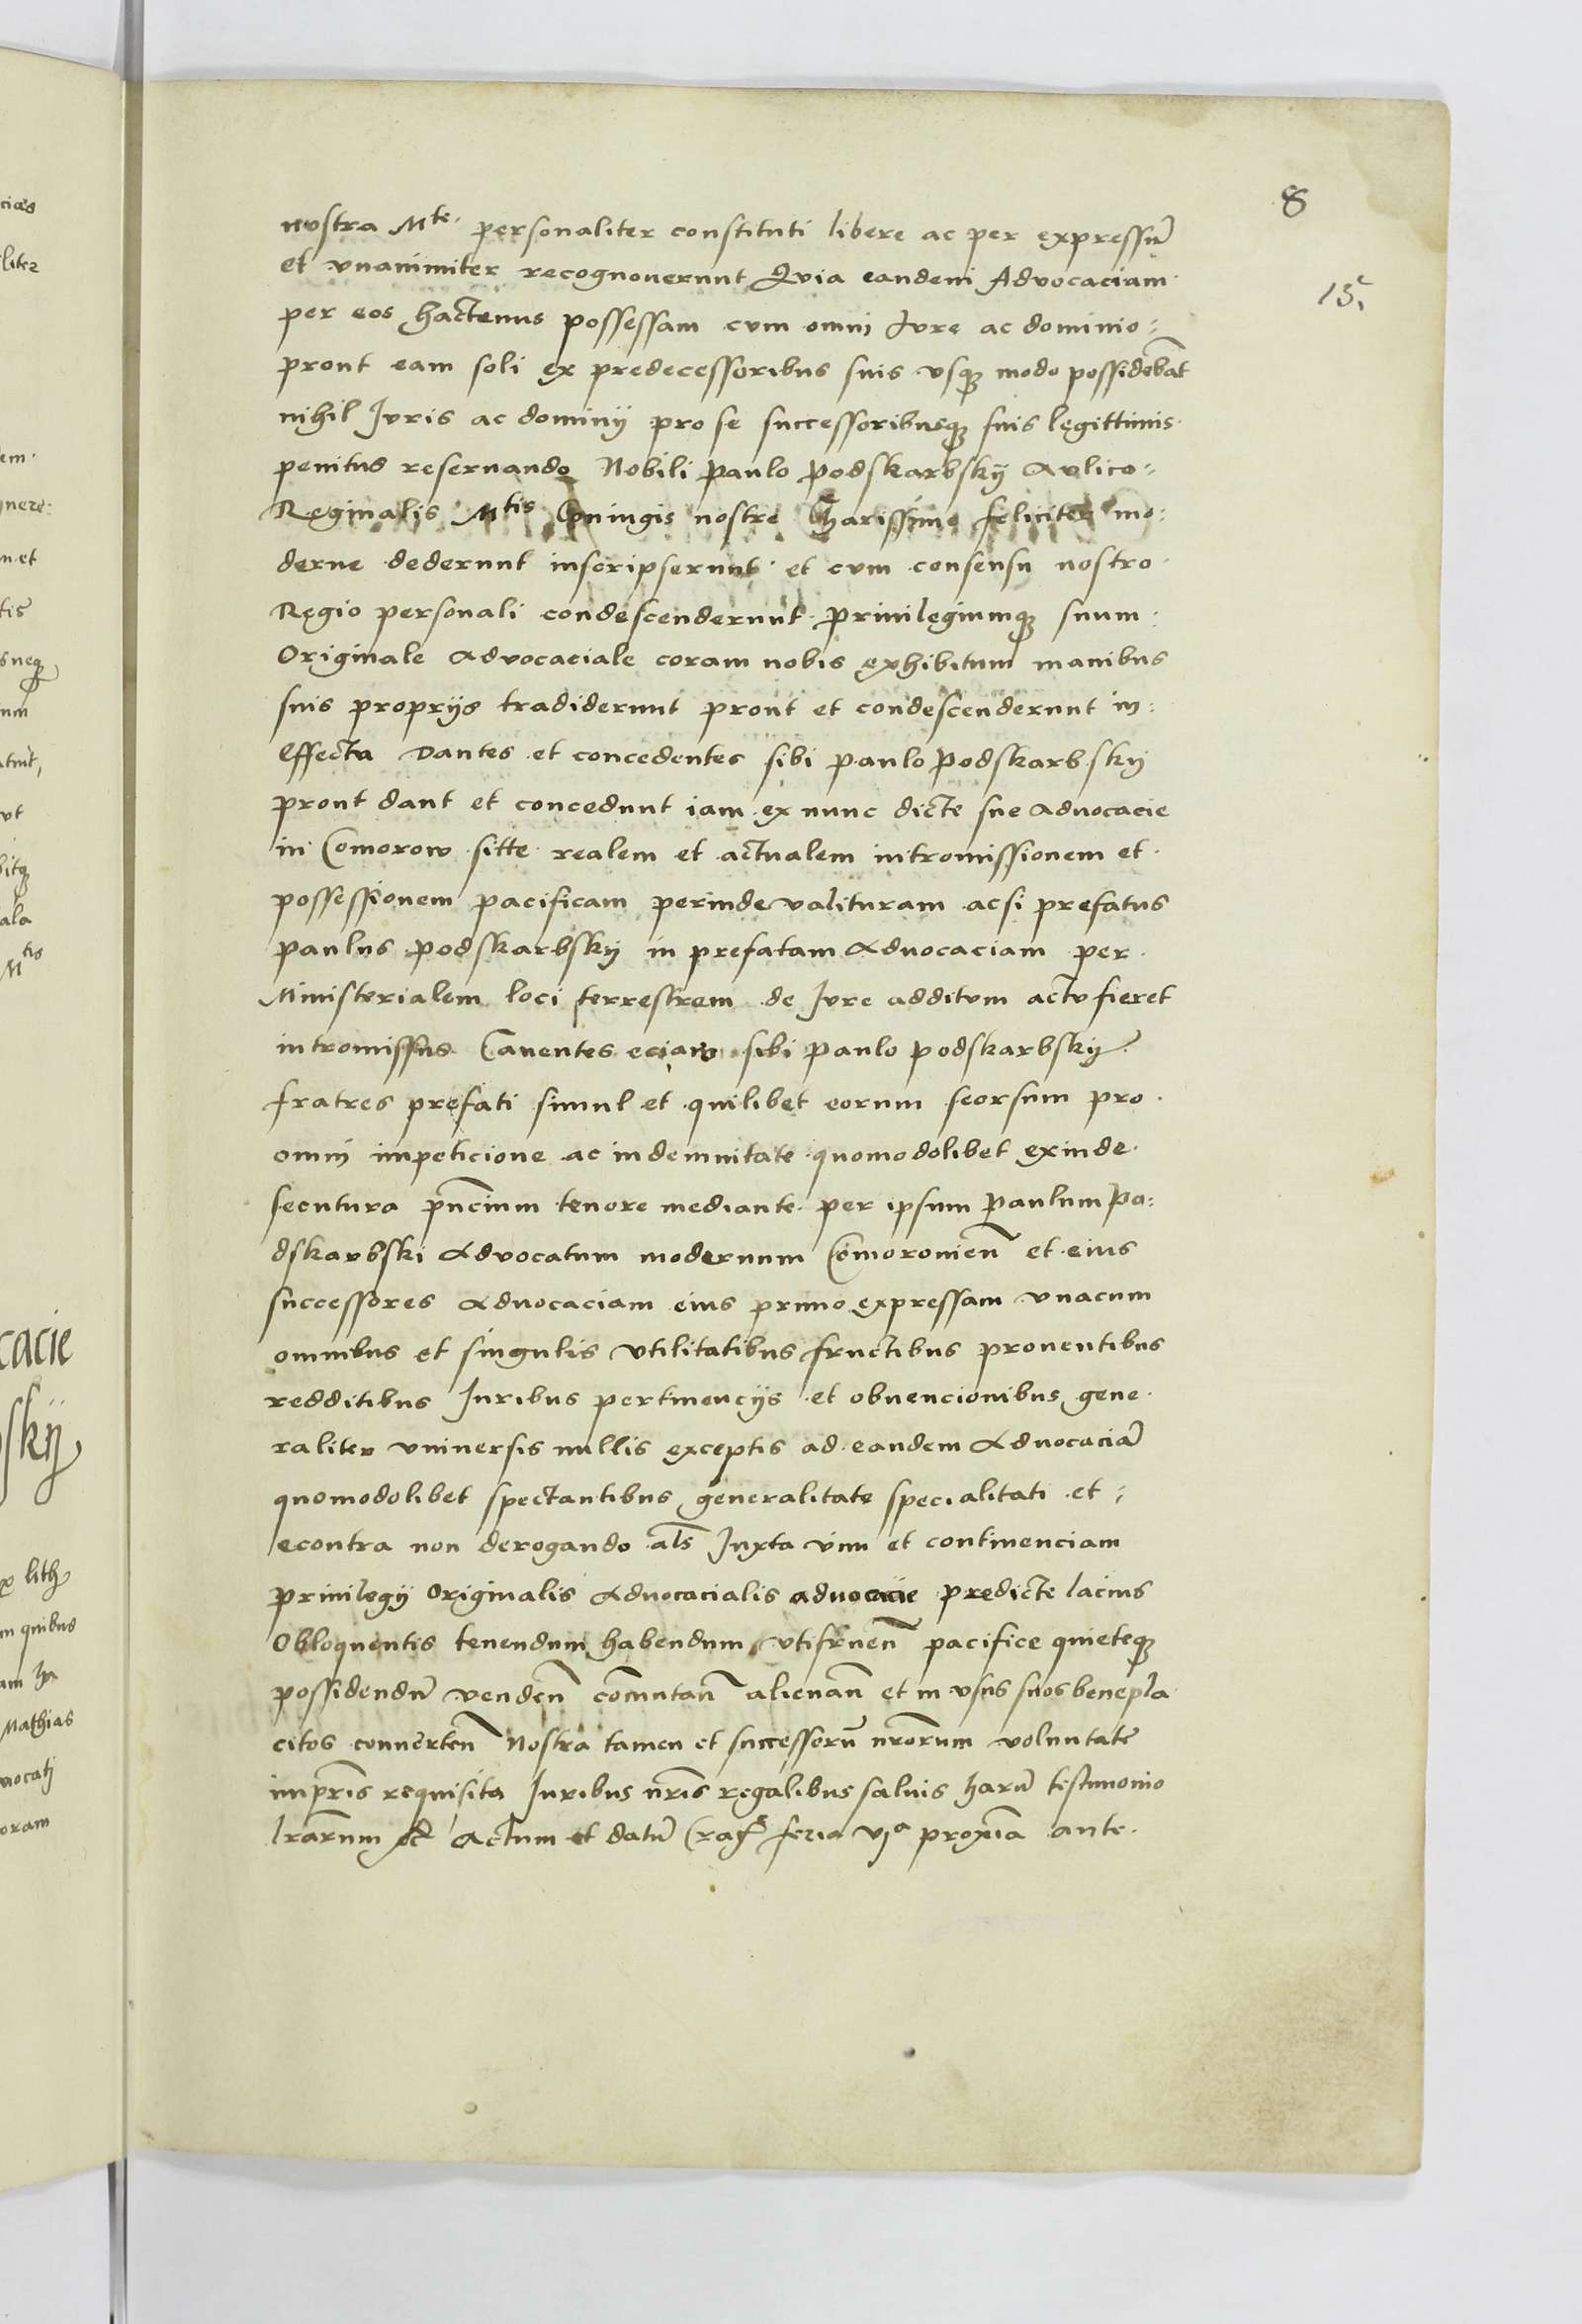 8
nostra Mte personaliter constituti libere ac per expressũ
et vnanimiter recognouerunt Qvia eandem Advocaciam
15.
per eos hactenus possessam cvm omni Jvre ac dominio
prout eam soli ex predecessoribus suis vsq; modo possidebãt
nihil Jvris ac dominij pro se successoribusq; suis legittimis
penitus reseruando Nobili Paulo Podskarbskij Avlico
Reginalis Mtis Coniugis nostre Charissime feliciter mo
derne dederunt inscripserunt et cvm consensu nostro
Regio personali condescenderunt priuilegiumq; suum
Originale advocaciale coram nobis exhibitum manibus
suis proprijs tradiderunt prout et condescenderunt in
effecta Dantes et concedentes sibi Paulo Podskarbskij
prout dant et concedunt iam ex nunc dicte sue Aduocacie
in Comorow sitte realem et actualem intromissionem et
possessionem pacificam perinde valituram acsi prefatus
Paulus Podskarbskij in prefatam Aduocaciam per
Ministerialem loci terrestrem de Jvre additvm actv fieret
intromissus Cauentes eciam sibi Paulo Podskarbskij
fratres prefati simul et quilibet eorum seorsum pro
omni impeticione ac indemnitate quomodolibet exinde
secutura pñcium tenore mediante per ipsum Paulum Po
dskarbski Advocatum modernum Comoronieñ et eius
successores Aduocaciam eius primo expressam vnacum
omnibus et singulis vtilitatibus fructibus prouentibus
redditibus Juribus pertinencijs et obuencionibus gene
raliter vniuersis nullis exceptis ad eandem Aduocaciã
quomodolibet spectantibus generalitate specialitati et
econtra non derogando als̃ Juxta vim et continenciam
priuilegij Originalis Aduocacialis aduocacie predicte lacius
Obloquentis tenendum habendum vtifrueñ pacifice quieteq;
possidendũ vendeñ com̃utañ alienañ et in vsus suos benepla
citos conuerteñ Nostra tamen et successorũ nr̃orum voluntate
impr̃is requisita Juribus nr̃is regalibus saluis harũ testimonio
lr̃arum Actum et datũ Crac feria vja proxĩa ante